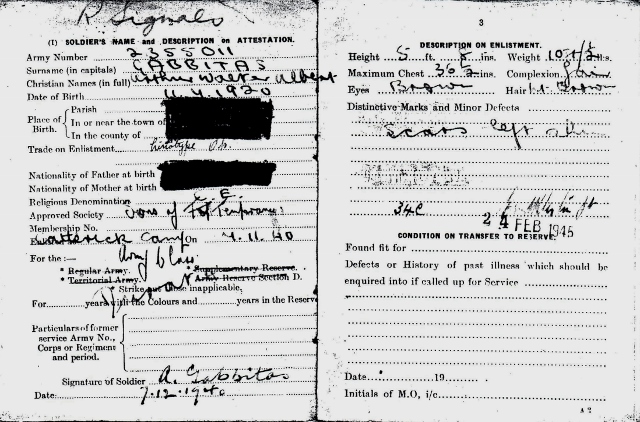 R Signals
(I) SOLDIER'S NAME and DESCRIPTION on ATTESTATION.
Army Number 2355011
Surname (in capitals) GABBITAS
Christian Names (in full) Arthur Walter Albert
Date of Birth 11.4.1920
Place of Birth.
Parish
In or near the town of
In the county of
Trade on Enlistment. Linotype Op.
Nationality of Father at birth
Nationality of Mother at birth
Religious Denomination C. E.
Approved Society Sons of Temperance
Membership No.
Catterick Camp On 7.11.40
For the :— Army Class
* Regular Army. * Supplementary Reserve.
* Territorial Army. * Army Reserve Section D.
* Strike out those inapplicable,
For years with the Colours and years in the Reserve
Particulars of former service Army No., Corps or Regiment and period.
Signature of Soldier A. Gabbitas
Date: 7.12.1940
3
DESCRIPTION ON ENLISTMENT.
Height 5 ft. 8 ins. Weight
Maximum Chest 36½ ins. Complexion
Eyes Brown Hair Brown
Distinctive Marks and Minor Defects
scars left
34C
24 FEB 1946
CONDITION ON TRANSFER TO RESERVE.
Found fit for
Defects or History of past illness which should be
enquired into if called up for Service
Date 19
Initials of M.O, i/c
A 2